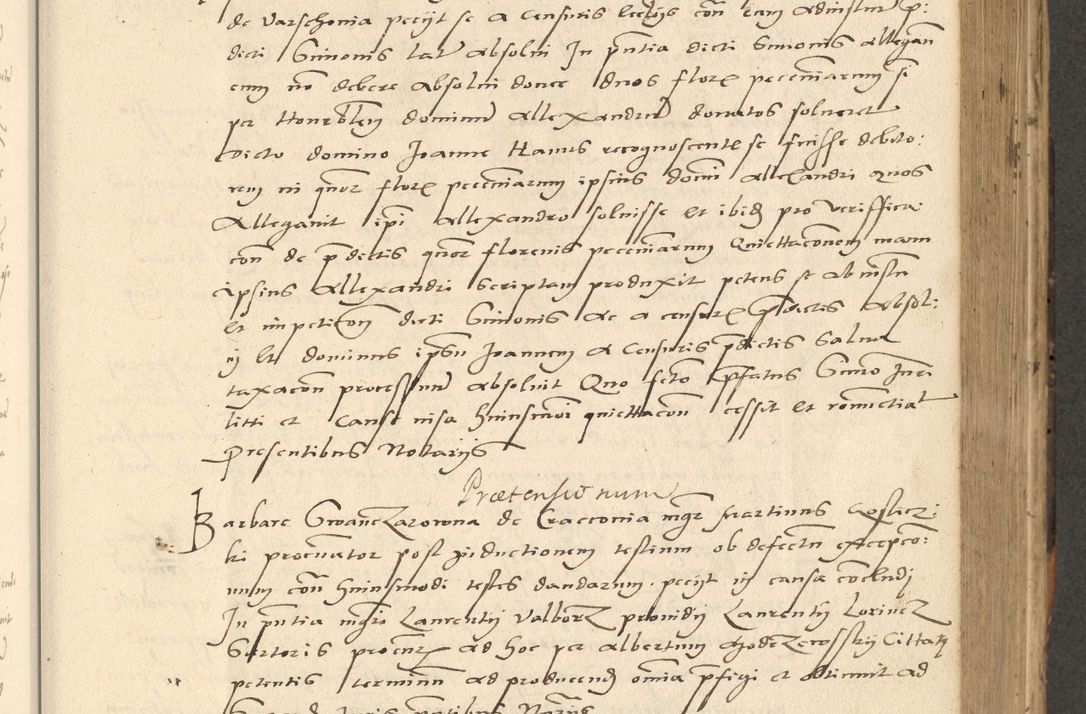 de Varschovia pecijt se a Censuris lectijs con eam ad instm p:
dicti Simonis lat absolvi In pntia dicti Simonis allegan
eum no debere absolvi donec duos flor peccuniarum si
per Honrblem dominum Allexandrum donatos solveret
Dicto domino Joanne Hanus recognoscente se fuisse debito:
rem in quor flor peccuniarum ipsius domini Allexandri quos
Allegavit ipi Allexandro solvisse et ibid pro veriffica:
con de pdictis quor florenis peccuniarum Quiettaconem manu
ipsius Allexandri Scriptam produxit petens se ab instn
et impeticon dicti Simonis ac a censur pdictis absol:
vj Et dominus ipsum Joannem a Censuris pdictis Salva
taxacon processuum absolvit Quo fcto pfatus Simo Juri
litti et Cause nisa huiusmoi quiettacon cessit et renunctiat
Presentibus Notarijs
Praetensionum
Barbare Swanczarowna de Cracconia mgr Martinus Coslicz:
ki procurator post pductionem testium ob defectu excepco:
num con huiusmodi testes dandarum peciit in causa concludj
In pntia mgri Laurentij Valborz providij Laurentij Lorincz
Sartoris procur ad hoc per Albertum Chodczewsskij Cittati
petentis terminum ad producend omia pfigi et obtinuit ad